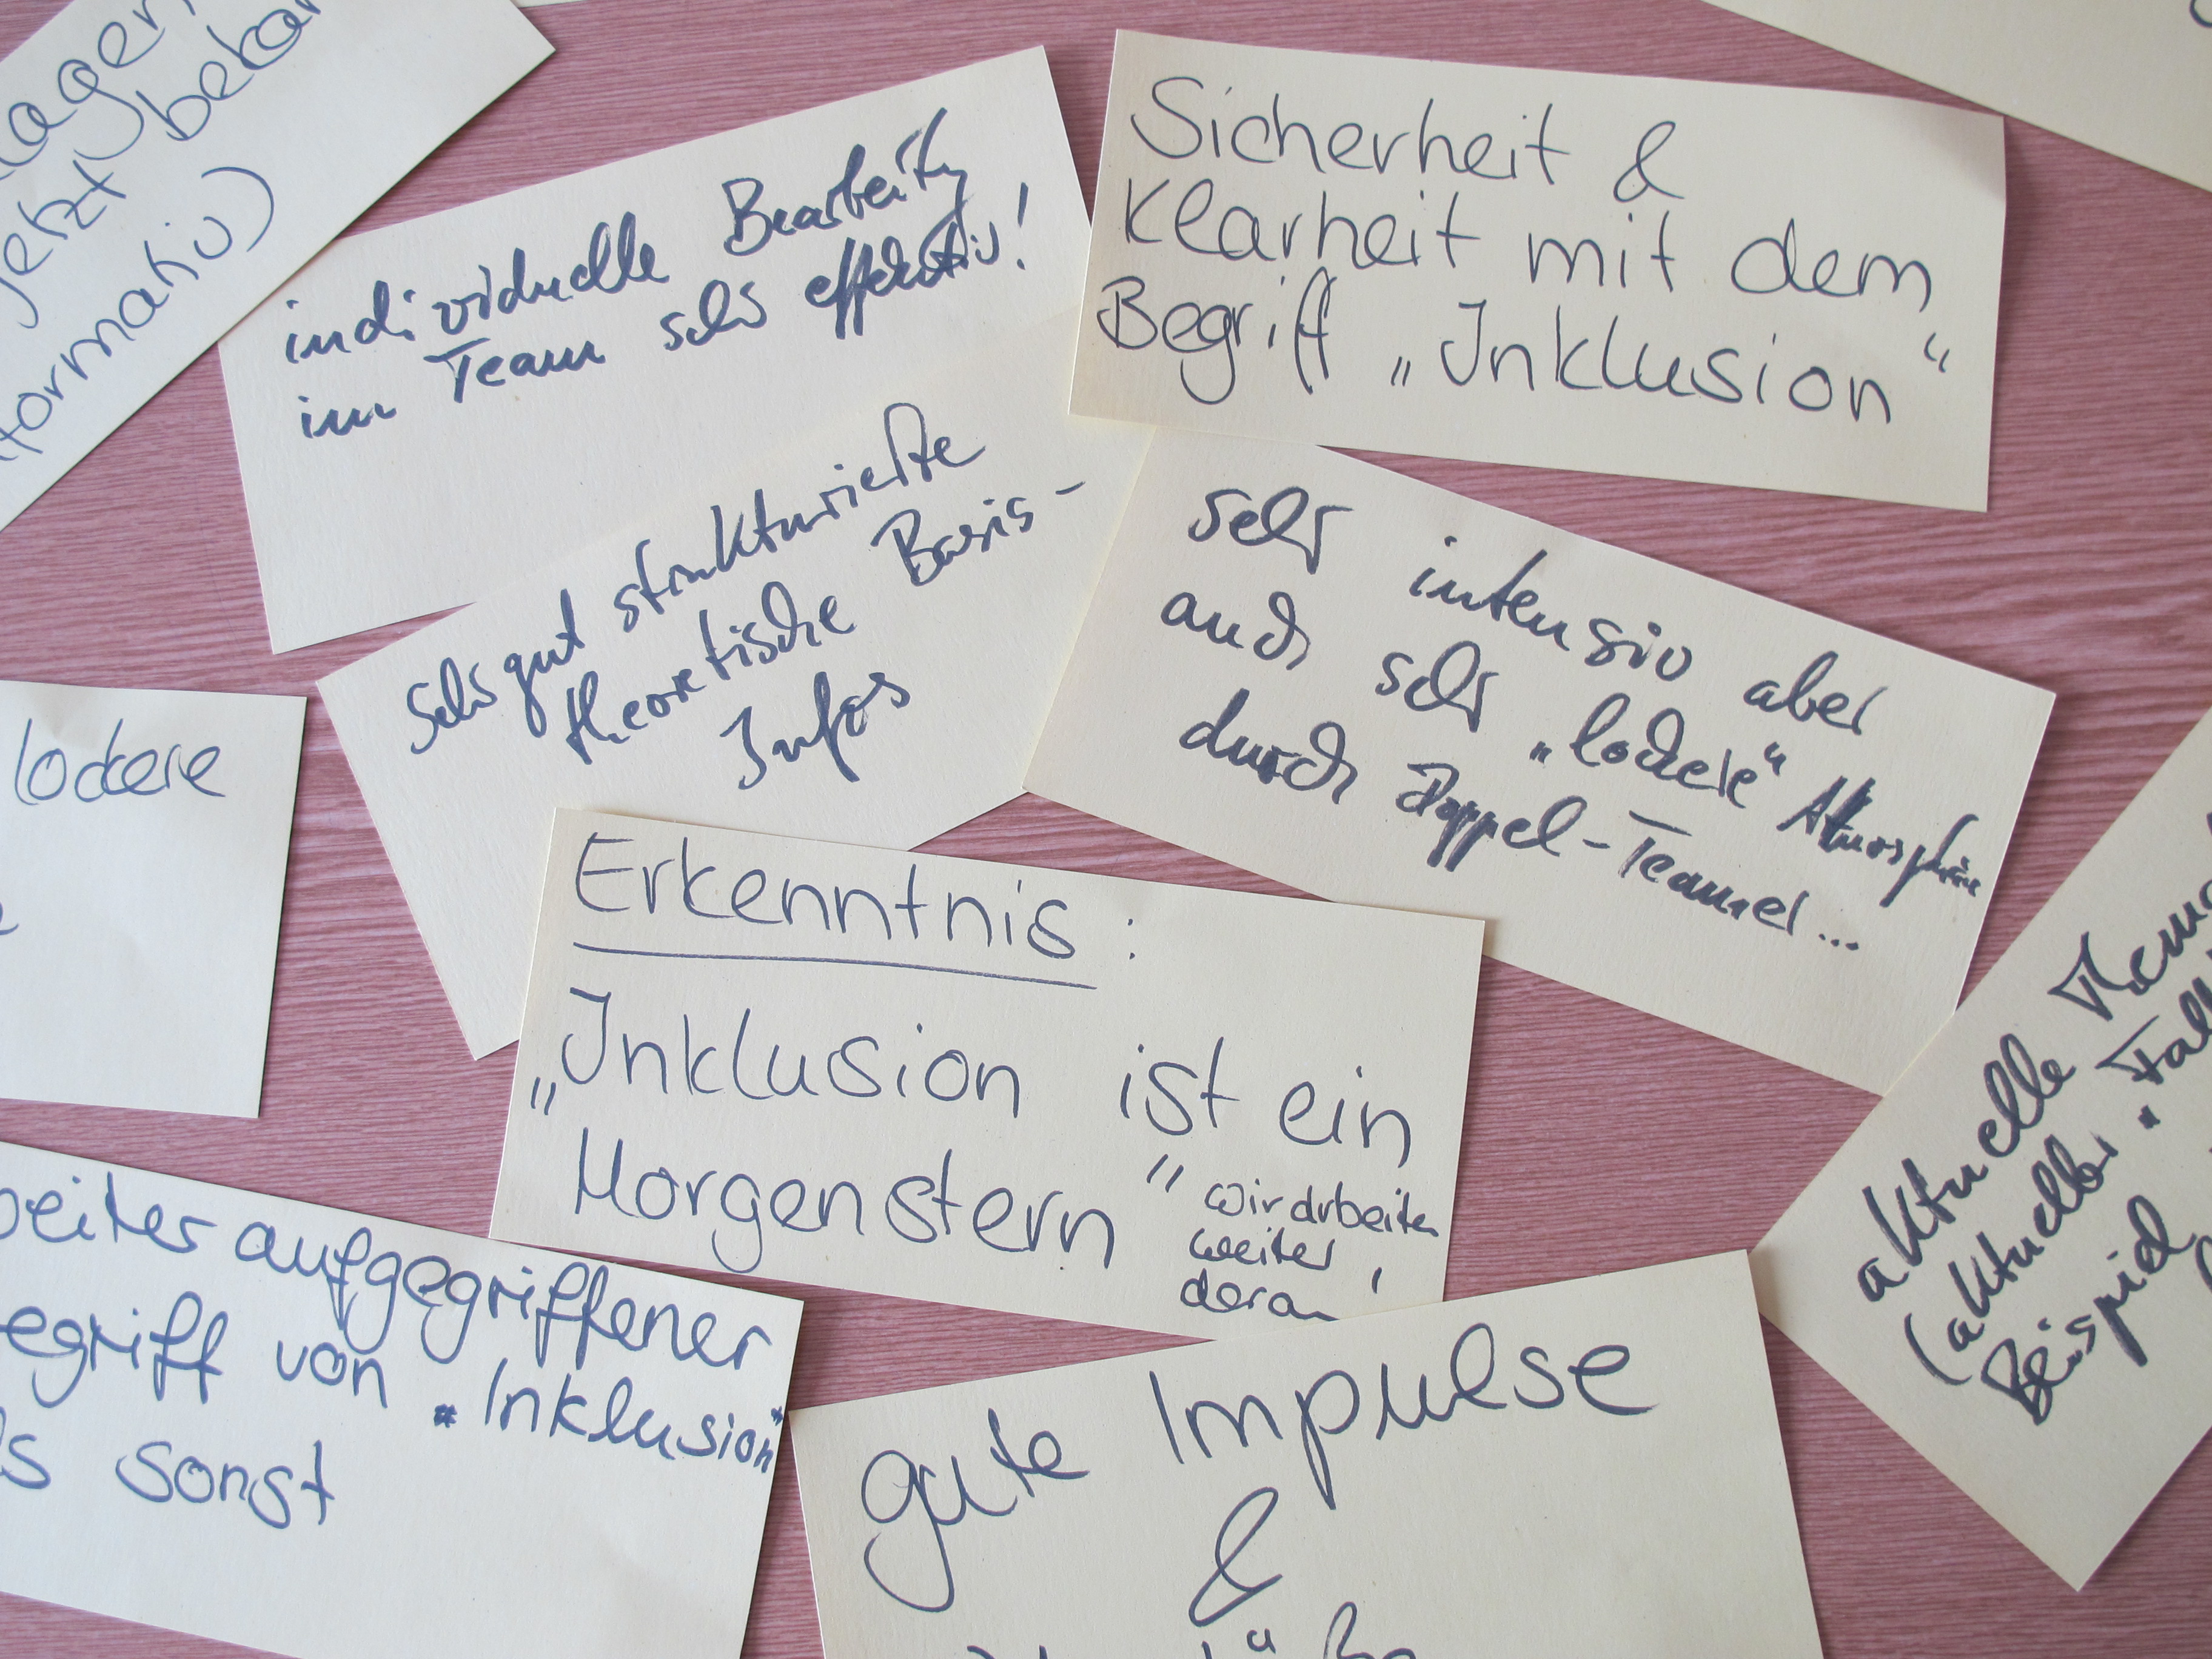 jetzt
individuelle Bearbeitg
im Team sehr effektiv!
Sicherheit &
Klarheit mit dem
Begriff „Inklusion“
sehr gut strukturierte
theoretische Basis-
Infos
sehr intensiv aber
auch sehr „lockere“ Atmosphäre
durch Doppel-Teamer...
lockere
Erkenntnis:
„Inklusion ist ein
Morgenstern“
wir arbeiten
weiter
daran!
aufgegriffener
von "Inklusion"
sonst
gute Impulse
&
aktuelle
(aktueller "Fall
Beispiel